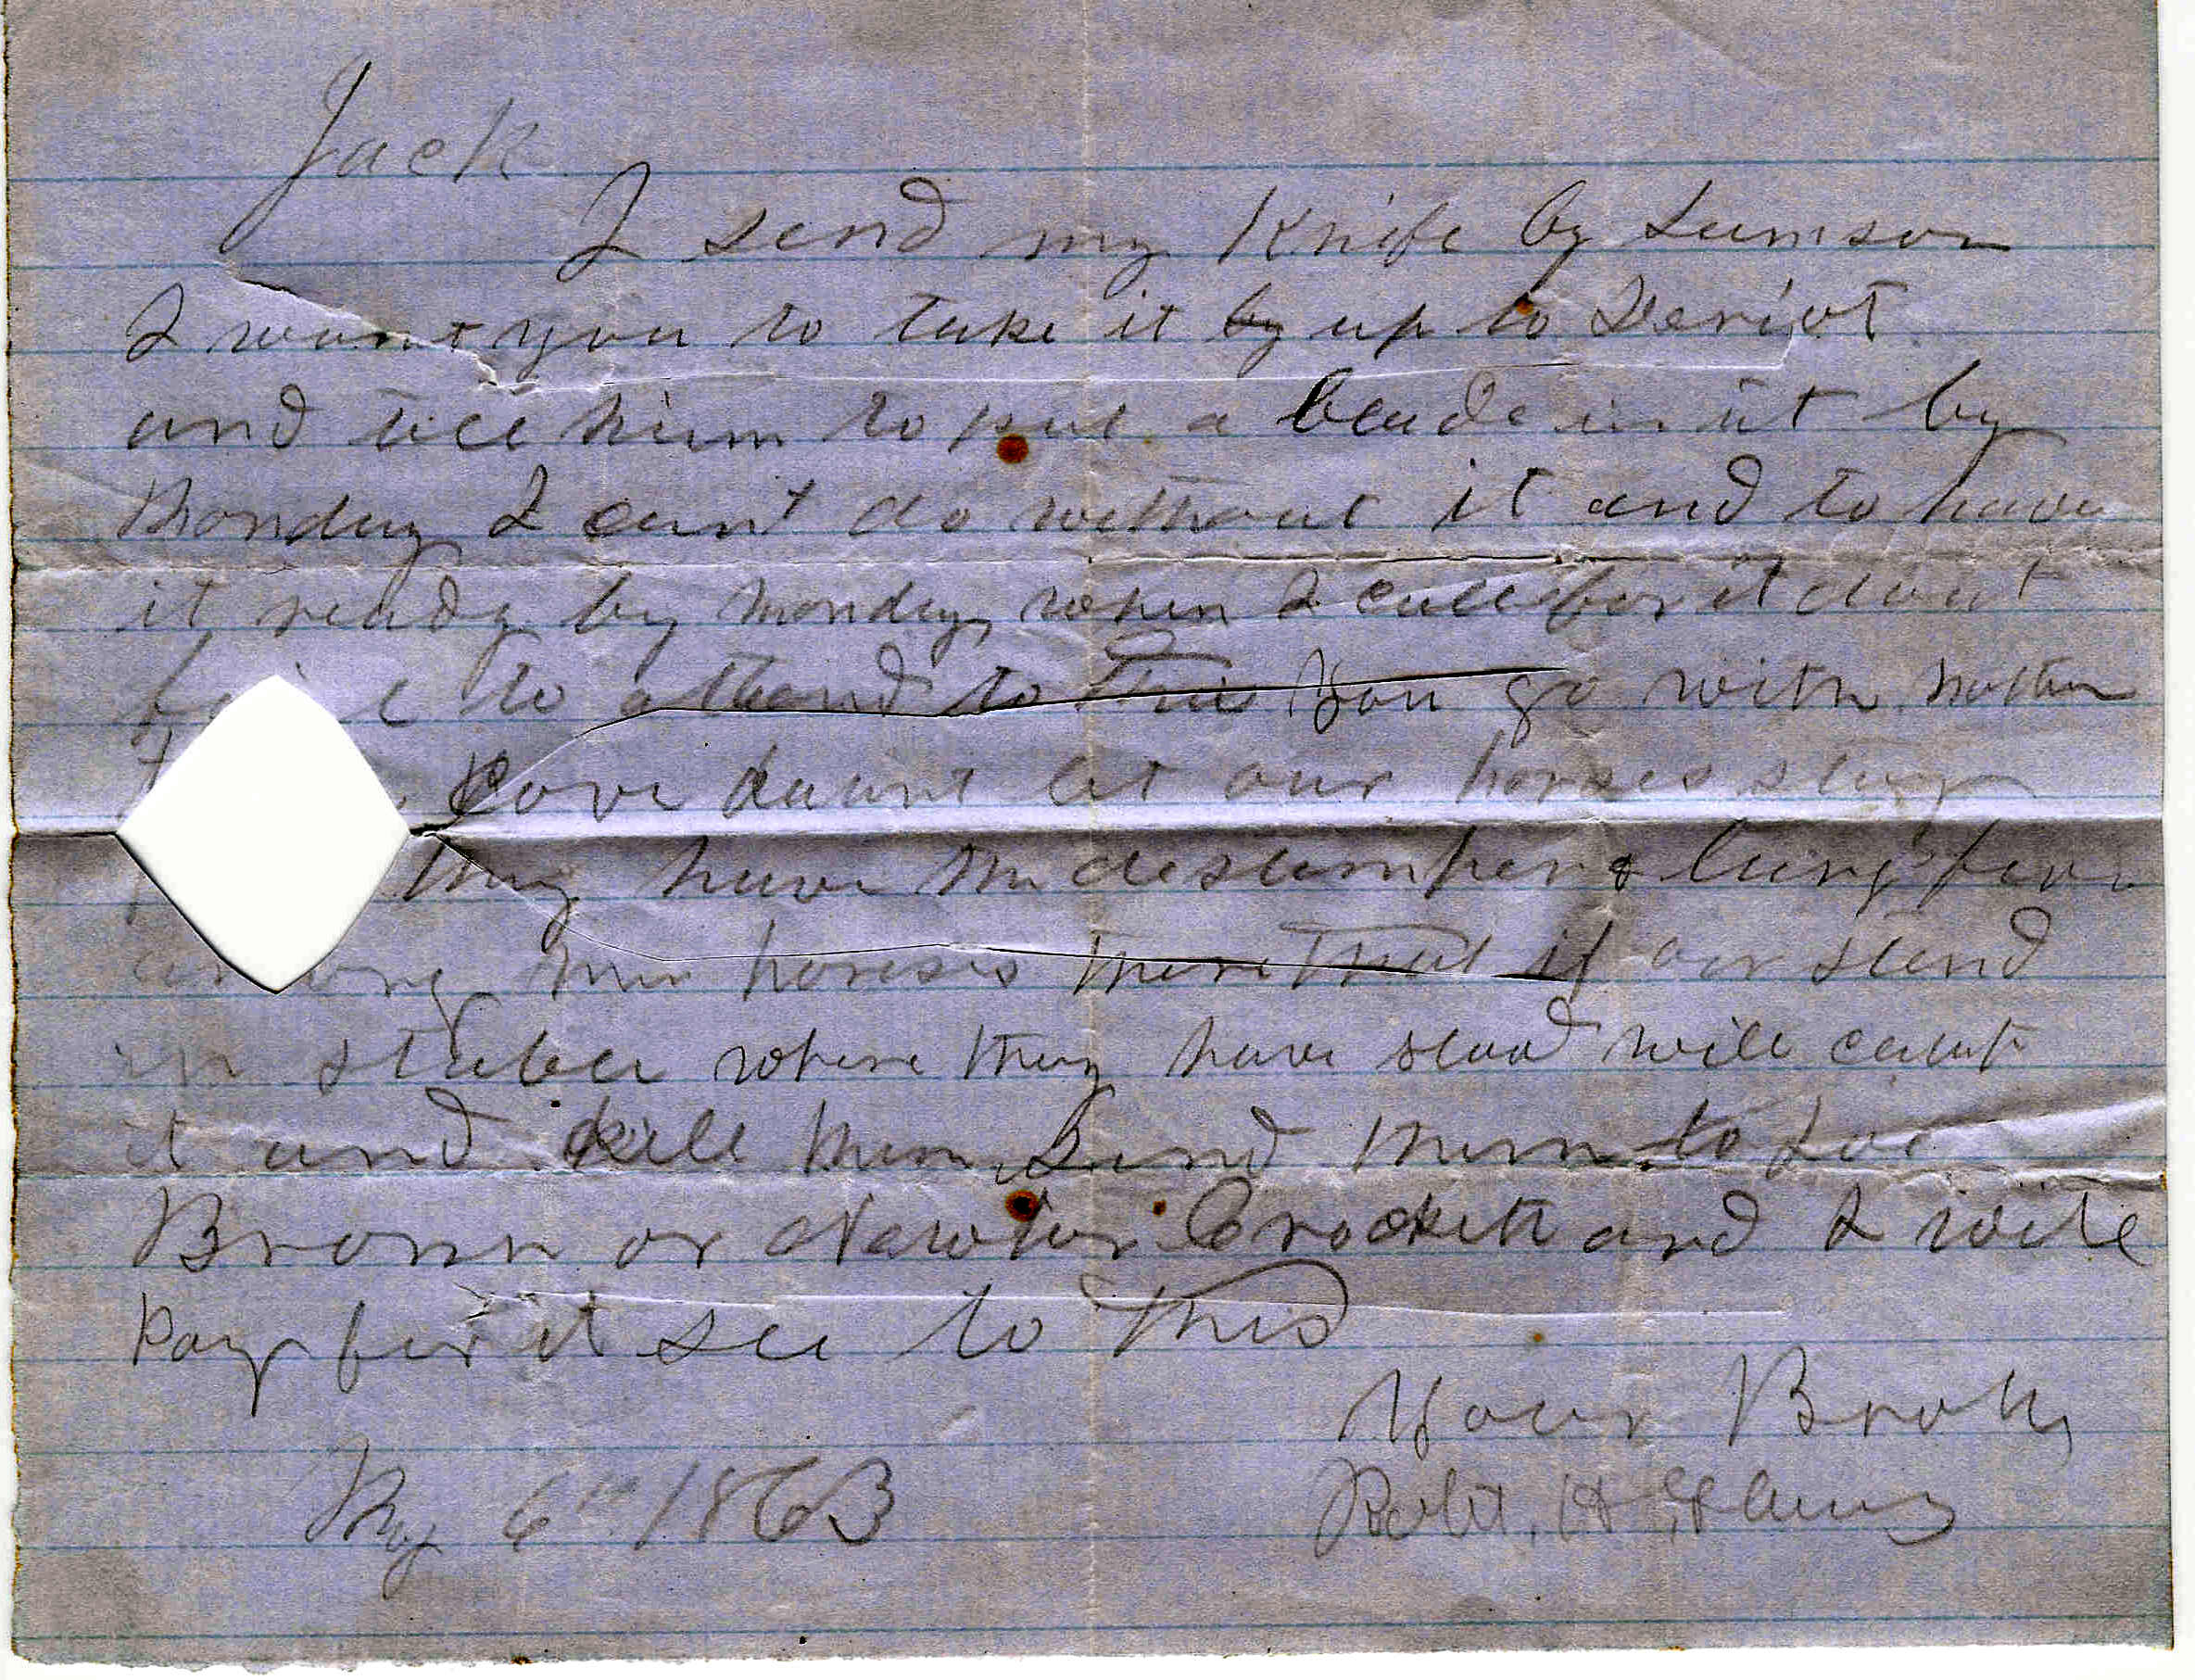 Jack
I send my Knife by Samson
I want you to take it by up to Heriot
and tell him to put a blade in it by
Monday I cant do without it and to have
it ready by Monday, when I call for it dont
to attend to this You go with mother
Cove daunt let our horses stay
they have the distemper & lung fever
among their horses there that if our stand
in stable where they have stood will catch
it and kill them Send them to Joe
Brown or Newton Crockett and I will
Pay for it see to this
Your Broth
May 6th 1863
Robt. H